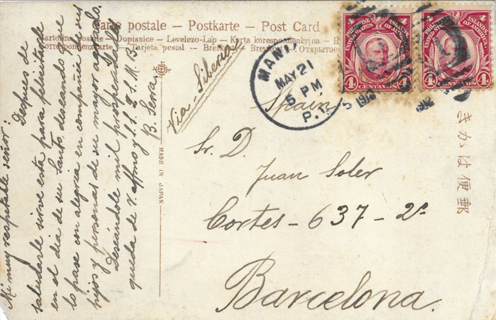 Carte postale - Postkarte - Post Card
Cartolina postale - Dopisnice - Levelezo-Lap - Karta korespondencyjna
Korrespondenzkarte - Tarjeta posal - Brefkort - Brevkort
Mi muy respetable señor:
Después de
saludarle sirve esta para felicitarle
en el día de su Santo deseando que
lo pase en alegría en compañía de sus
hijos y personas de su mayor agrado.
Deseándole mil prosperidades
queda de V. affmo y S. S. Q. S. M. B.
B. Serra
Via Siberia
MADE IN JAPAN
MAY 21
5 PM
P.I.
4 CENTAVOS 4
4 CENTAVOS 4
Spain
Sr. D.
Juan Soler
Cortes - 637 - 2º
Barcelona.
きかは便郵